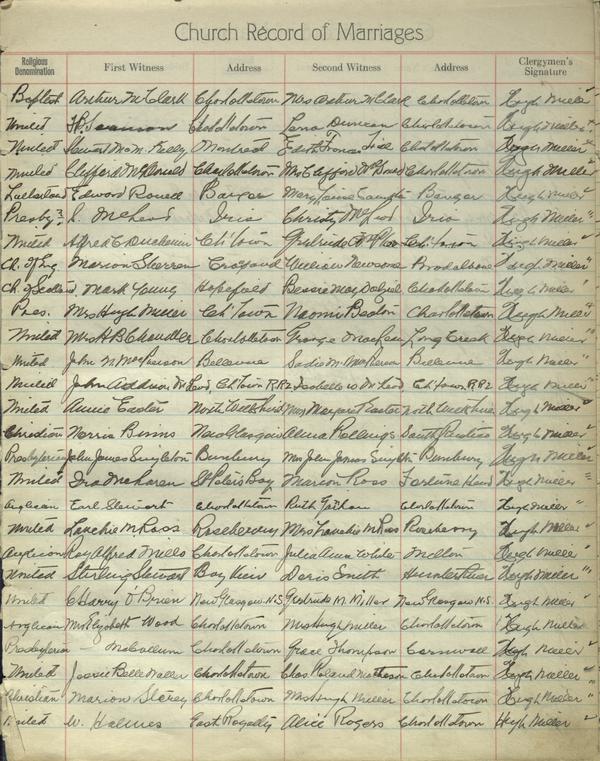 Church Record of Marriages
Religious Denomination First Witness Address Second Witness Address Clergymen's Signature
Baptist Arthur McClark Charlottetown Mrs Arthur McClark Charlottetown Hugh Miller
United Charlottetown Lena Duncan Charlottetown Hugh Miller
United Stewart M. M. Kelly Montreal Edith Frances Charlottetown Hugh Miller
United Clifford McDonald Charlottetown Mrs Clifford McDonald Charlottetown Hugh Miller
Edward Bangor Mary Bangor Hugh Miller
Presby? McLeod Iris Christy McLeod Iris Hugh Miller
United Alfred E Ch'Town Gertrude Ch'Town Hugh Miller
Ch. of Eng Marion Sherren Crapaud William Newsome Bradalbane Hugh Miller
Ch. of Scotland Mark Young Hopefield Bessie May Charlottetown Hugh Miller
Pres. Mrs Hugh Miller Ch'Town Naomi Beaton Charlottetown Hugh Miller
United Mrs H B Chandler Charlottetown George MacLean Long Creek Hugh Miller
United John N. MacPherson Bellevue Sadie M. MacPherson Bellevue Hugh Miller
United John Addison Ch. Town RR2 Ch. Town RR2 Hugh Miller
United Annie Easter North Mrs Margaret Easter North Hugh Miller
Christian Norris Binns New Glasgow Alma Hugh Miller
Presbyterian John James Singleton Bunbury Mrs John James Singleton Bunbury Hugh Miller
United Ira McLaren St Peters Bay Marion Ross Hugh Miller
Anglican Earl Stewart Charlottetown Ruth Charlottetown Hugh Miller
United Lauchie M Ross Roseberry Mrs Lauchie M Ross Roseberry Hugh Miller
Ray Alfred Mills Charlottetown Julia Ann Hugh Miller
United Sterling Stewart Bay View Doris Smith Hunter River Hugh Miller
United C Harry O'Brien New Glasgow N.S. Gertrude M. Miller New Glasgow N.S. Hugh Miller
Anglican Mrs Elizabeth Wood Charlottetown Mrs Hugh Miller Charlottetown Hugh Miller
Presbyterian McCallum Charlottetown Grace Thompson Cornwall Hugh Miller
United Jessie Belle Charlottetown Chas Roland Matheson Charlottetown Hugh Miller
Christian Marion Charlottetown Mrs Hugh Miller Charlottetown Hugh Miller
United W. Holmes East Royalty Alice Rogers Charlottetown Hugh Miller